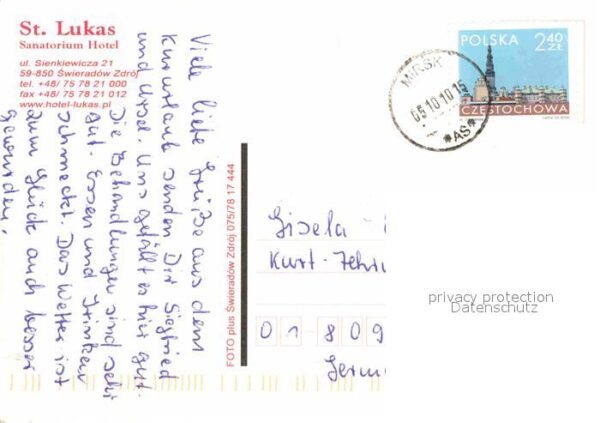 St. Lukas
Sanatorium Hotel
ul. Sienkiewicza 21
59-850 Świeradów Zdrój
tel. +48/ 75 78 21 000
fax +48/ 75 78 21 012
www.hotel-lukas.pl
Viele liebe Grüße aus dem
Kururlaub senden Dir Siegfried
und Ursel. Uns gefällt es hier gut.
Die Behandlungen sind sehr
gut. Essen und Trinken
schmeckt. Das Wetter ist
zum Glück auch besser
geworden.
FOTO plus Świeradów Zdrój 075/78 17 444
POLSKA
2 40 ZŁ
CZĘSTOCHOWA
MIRSK
05.10.10.15
*AS*
Gisela
Kurt-
01-809
privacy protection
Datenschutz